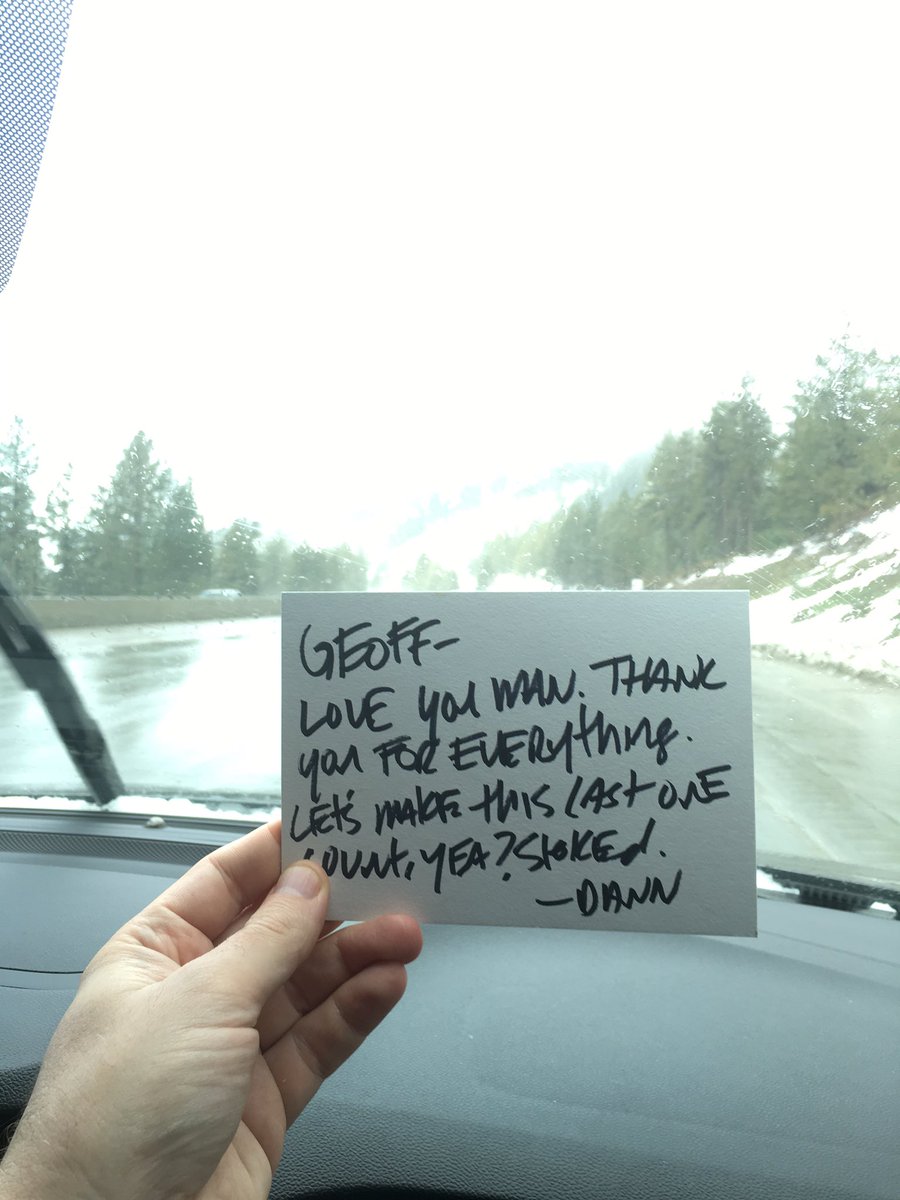 GEOFF-
LOVE YOU MAN. THANK
YOU FOR EVERYthing.
LET'S MAKE this LASt ONE
COUNT, YEA? StOKED.
-DANN